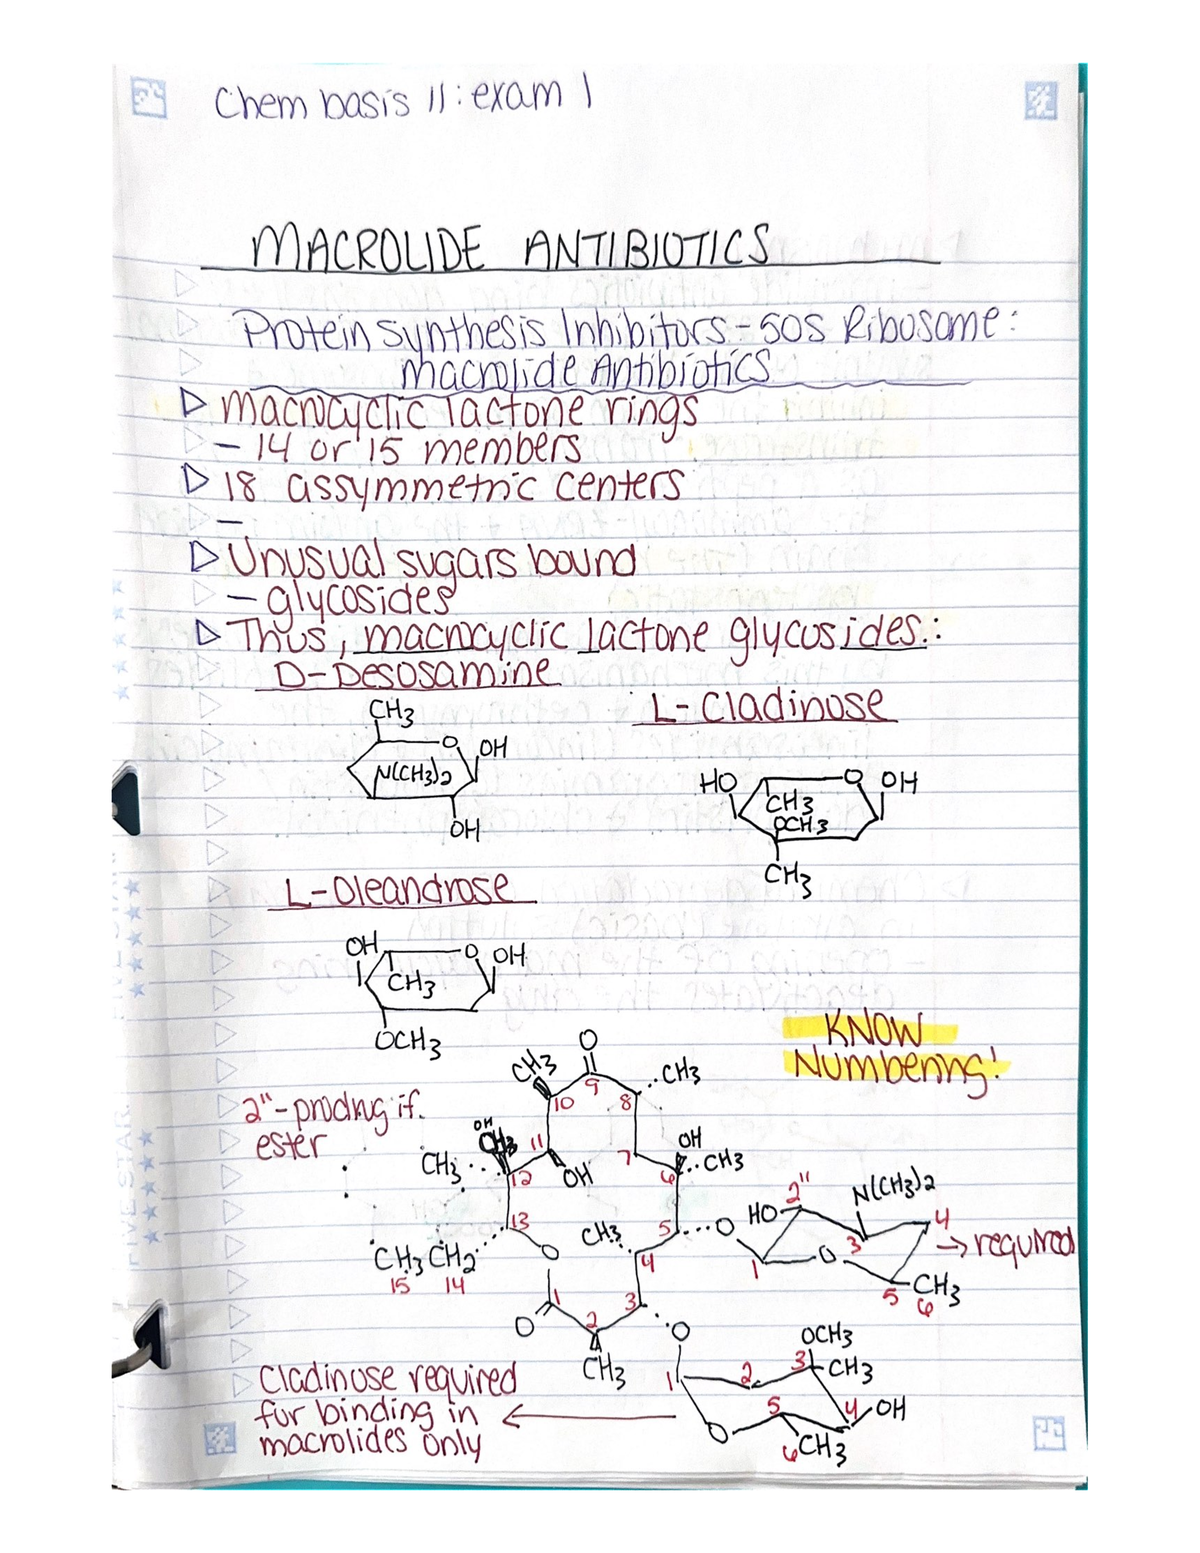 Chem basis II: exam 1
MACROLIDE ANTIBIOTICS
Protein Synthesis Inhibitors - 50S Ribosome:
macrolide Antibiotics
▷ macrocyclic lactone rings
- 14 or 15 members
▷ 18 assymmetric centers
-
▷ Unusual sugars bound
- glycosides
▷ Thus, macrocyclic lactone glycosides.:
D-Desosamine
L-Cladinose
CH3
O OH
N(CH3)2
OH
HO O OH
CH3
OCH3
CH3
L-Oleandrose
OH O OH
CH3
OCH3
KNOW
Numbering!
2"-prodrug if
ester
O
CH3 9 CH3
10 8
OH
11 7 OH
CH3 12 OH 6 CH3
2" N(CH3)2
13 CH3 5 O HO 4 → required
CH3 CH2 O 4 1 O 3
15 14 5 CH3
6
1 3
O 2 O
CH3
OCH3
1 2 3 CH3
5 4 OH
O 6 CH3
Cladinose required
for binding in ←
macrolides only